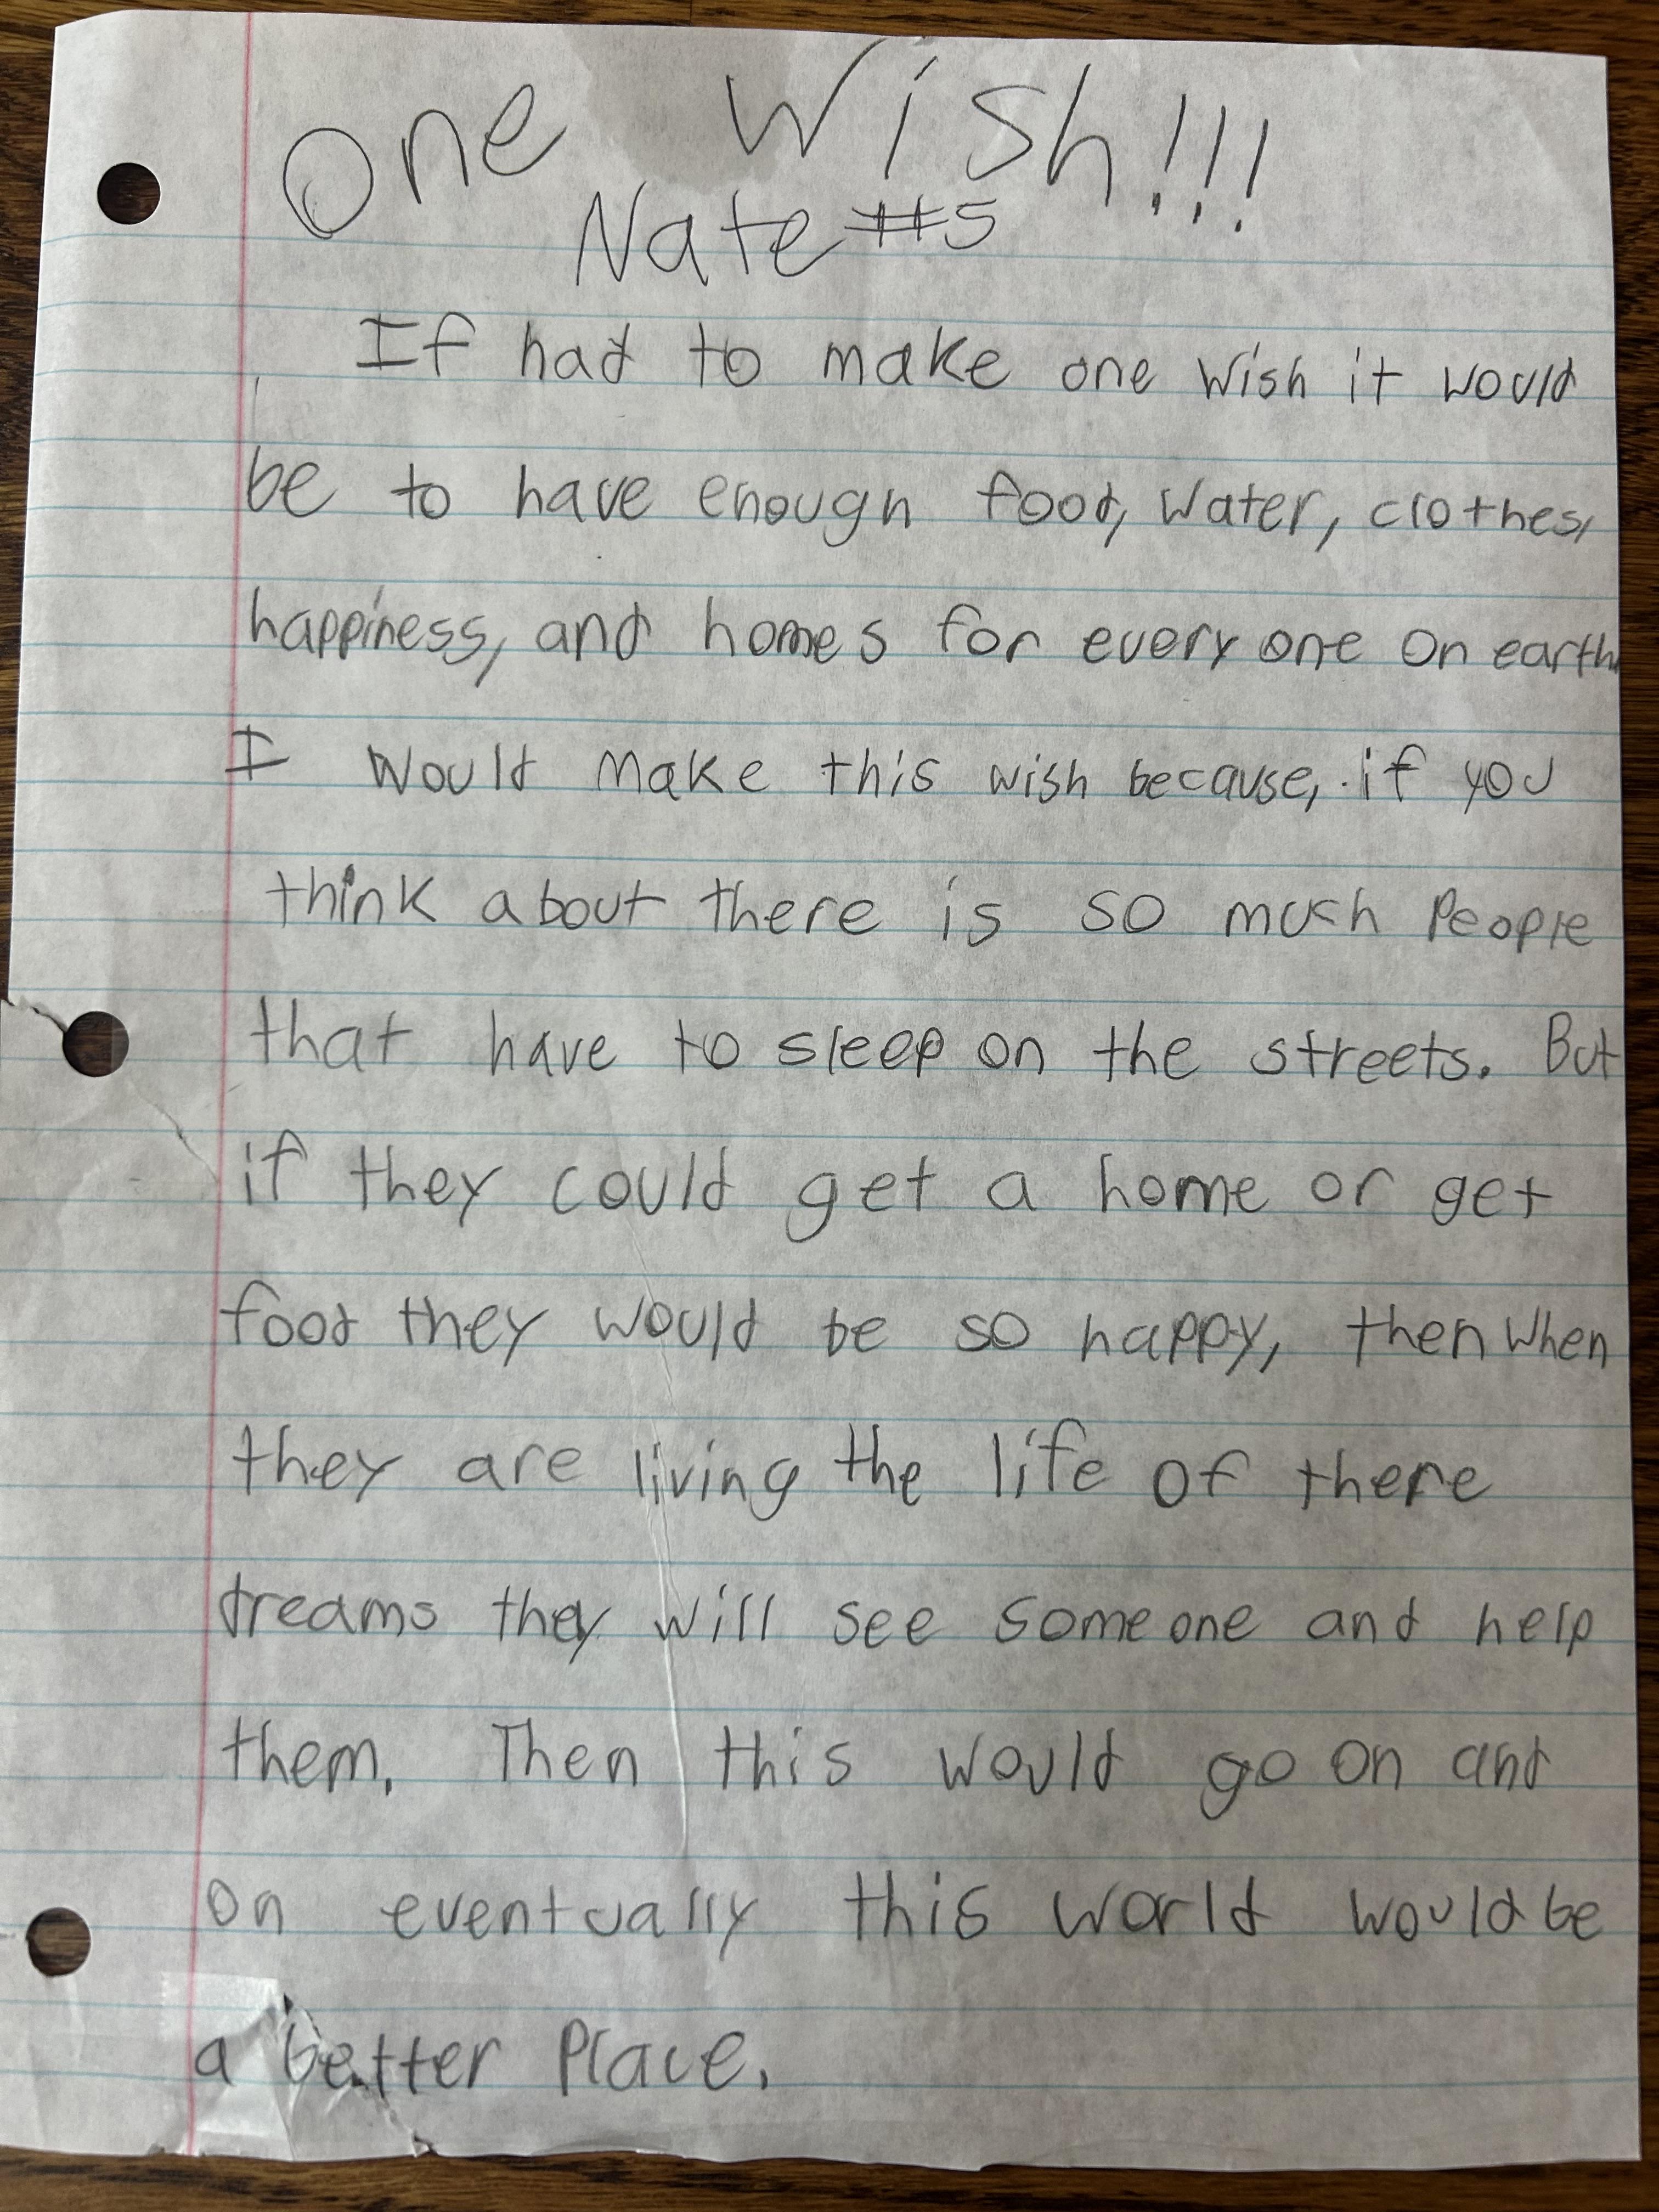 One Wish!!!
Nate #5
If had to make one wish it would
be to have enough food, water, clothes,
happiness, and homes for every one on earth.
I would make this wish because, if you
think about there is so much people
that have to sleep on the streets. But
if they could get a home or get
food they would be so happy, then when
they are living the life of there
dreams they will see someone and help
them. Then this would go on and
on eventually this world would be
a better place.